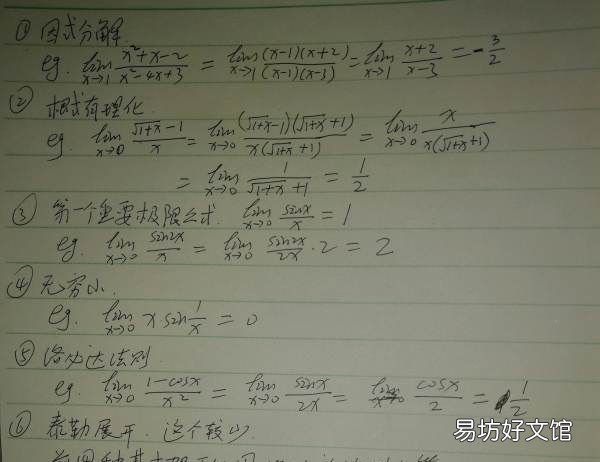 ① 因式分解
eg. lim x→1 (x²+x-2)/(x²-4x+3) = lim x→1 (x-1)(x+2)/(x-1)(x-3) = lim x→1 (x+2)/(x-3) = -3/2
② 根式有理化
eg. lim x→0 (√(1+x)-1)/x = lim x→0 (√(1+x)-1)(√(1+x)+1)/x(√(1+x)+1) = lim x→0 x/x(√(1+x)+1)
= lim x→0 1/(√(1+x)+1) = 1/2
③ 第一个重要极限公式. lim x→0 sinx/x = 1
eg. lim x→0 sin2x/x = lim x→0 sin2x/2x · 2 = 2
④ 无穷小.
eg. lim x→0 x sin 1/x = 0
⑤ 洛必达法则
eg. lim x→0 (1-cosx)/x² = lim x→0 sinx/2x = lim x→0 cosx/2 = 1/2
⑥ 泰勒展开. 这个较少.
易坊好文馆